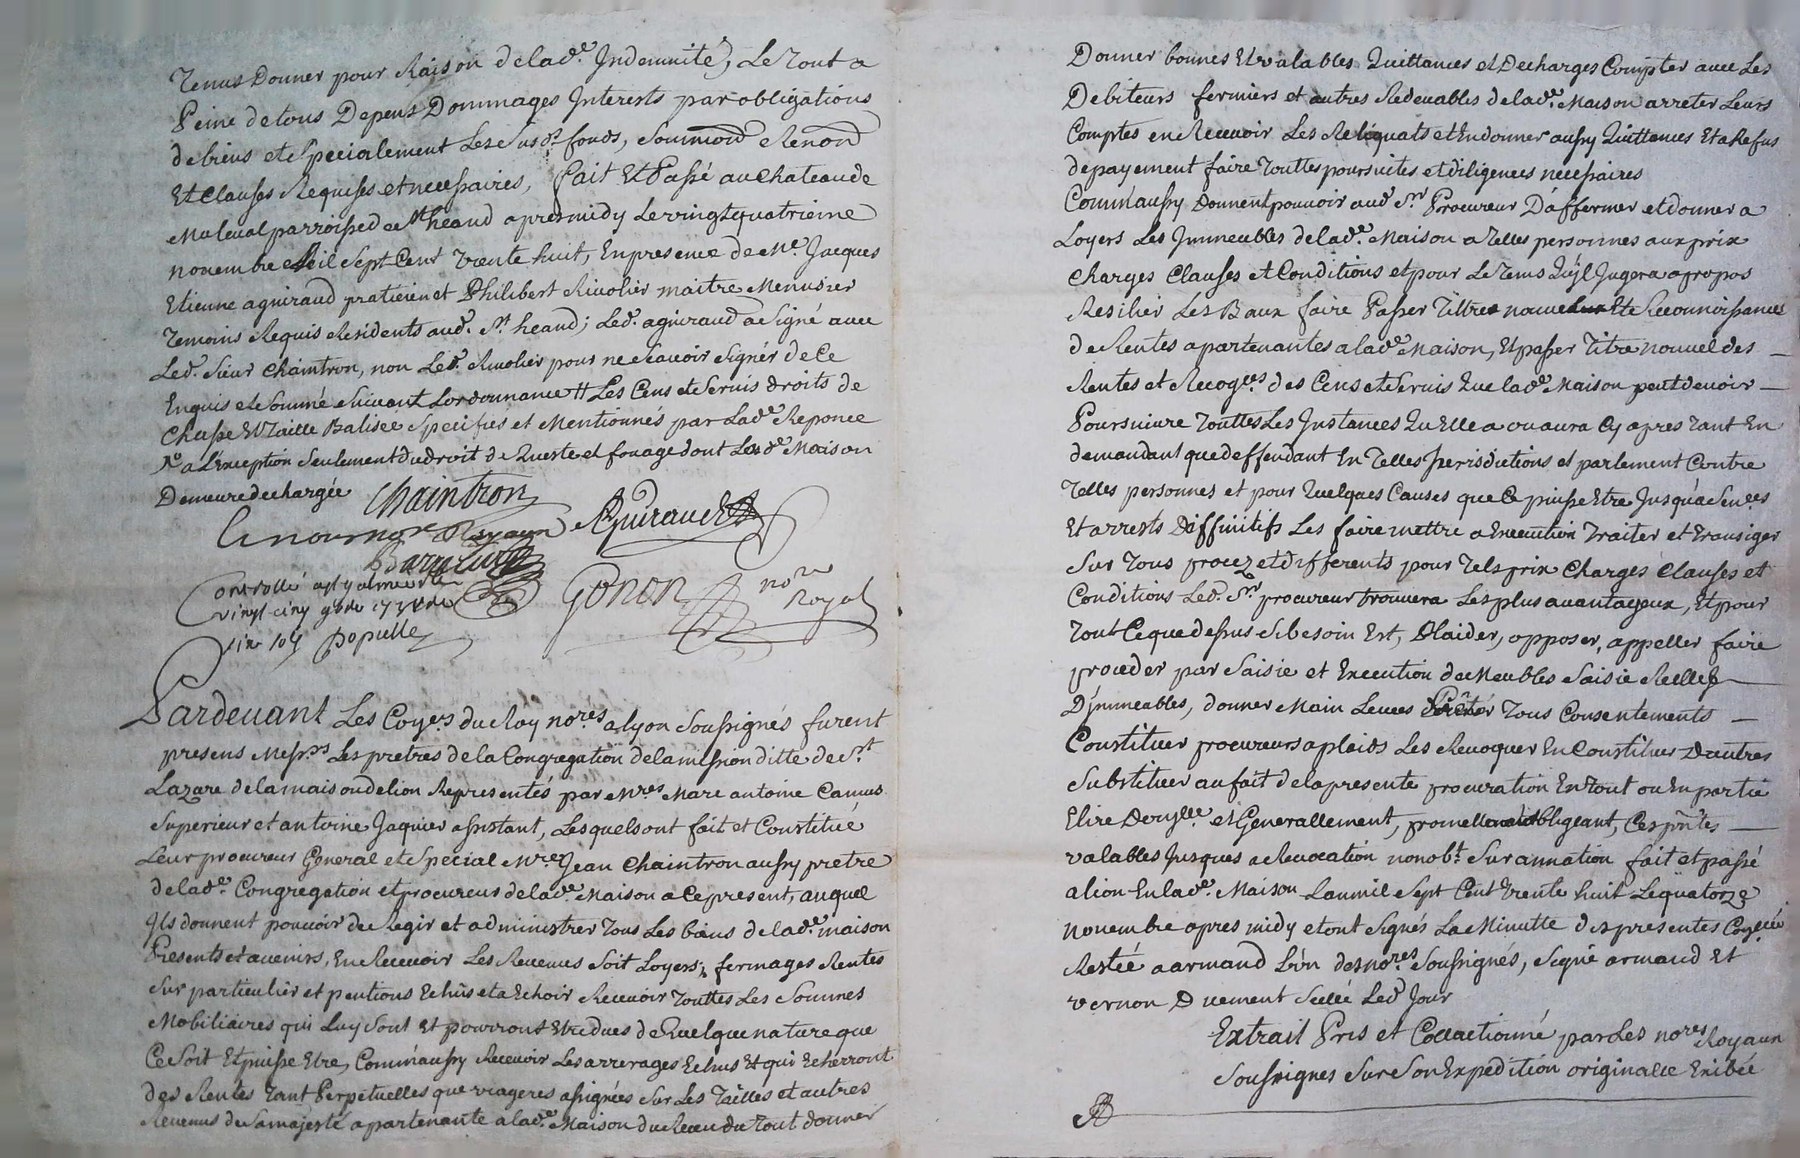 Tenus Donner pour Raison de lad.e Indemnité, Le tout a
Peine de tous Depens Dommages Interests par obligations
de biens et Specialement Les Susd.s fonds, Soumon Renon
Et Clauses Requises et necessaires, fait Et Passé au Chateau de
Maleval parroisse de S.t heand apres midy Le vingt quatrieme
novembre Mil Sept Cent Trente huit, En presence de M.e Jacques
Etienne aguiraud praticien et Philibert Rivolier maitre Menusier
Temoins Requis Residents aud. S.t heand; Led. aguiraud a Signé avec
Led. Sieur Chaintron, non Led. Rivolier pour ne Scavoir Signer de Ce
Enquis et Sommé Suivant Lordonnance # Les Cens et Servis droits de
Chasse Et Taille Balisee Specifies et Mentionnés par Lad.e Reponce
a L'exception Seulement du droit de Queste et fouage dont Lad.e Maison
Demeure dechargée Chaintron
AGuiraud
Gonon no.re Royal
Controllé a St yalmier Le
vingt cinq 9bre 1738
dix 10s Populle
Pardevant Les Coy.ers du Roy no.res a lyon Soussignés furent
presens Mess.rs Les pretres de la Congregation de la mission ditte de S.t
Lazare de la maison de lion Representés par M.res Marc antoine Camus
Superieur et antoine Jaquier assistant, Lesquels ont fait et Constitué
Leur procureur General et Special M.re Jean Chaintron aussy pretre
de lad.e Congregation et procureur de lad.e Maison a Ce present, auquel
Ils donnent pouvoir de Regir et administrer Tous Les biens de lad.e maison
Presents et avenirs, En Recevoir Les Revenus Soit Loyers, fermages Rentes
Sur particulier et pentions Echûs et a Echoir Recevoir Touttes Les Sommes
Mobiliaires qui Luy Sont Et pourront Etre dues de Quelque nature que
Ce Soit Et puisse Etre, Comm'aussy Recevoir Les arrerages Echus Et qui Echerront
des Rentes Tant Perpetuelles que viageres assignées Sur Les Tailles et autres
Revenus de Sa majesté apartenante a lad.e Maison du Receu du tout donner
Donner bonnes Et valables Quittances et Decharges Compter avec Les
Debiteurs fermiers et autres Redevables de lad.e Maison arreter Leurs
Comptes en Recevoir Les Reliquats et En donner aussy Quittances Et a Refus
de payement faire Touttes poursuites et diligences necessaires
Comm'aussy Donnent pouvoir aud. S.r Procureur D'affermer et donner a
Loyers Les Immeubles de lad.e Maison a Telles personnes aux prix
Charges Clauses et Conditions et pour Le Tems Qu'il Jugera apropos
Resilier Les Baux faire Passer Tittres nouveaux Et Reconnoissances
de Rentes apartenantes a lad.e Maison, Et passer Titre nouvel des
Rentes et Recog.ces des Cens et Servis Que lad.e Maison peut devoir
Poursuivre Touttes Les Instances Qu Elle a ou aura Cy apres Tant En
demandant que deffendant En Telles Jurisdictions et parlement Contre
Telles personnes et pour Quelques Causes que Ce puisse Etre Jusqu'a Sen.ces
Et arrests Diffinitifs Les faire mettre a Execution Traiter et transiger
Sur Tous procez et differents pour Tels prix Charges Clauses et
Conditions Led. S.r procureur trouvera Les plus avantageux, Et pour
Tout Ce que dessus Si besoin Est, Plaider, opposer, appeller faire
proceder par Saisie et Execution de Meubles Saisie Reelles
D'immeubles, donner Main Levees Prêter Tous Consentements
Constituer procureurs a plaids Les Revoquer En Constituer Dautres
Substituer au fait de la presente procuration En tout ou En partie
Elire Domylle et Generallement, promettant obligeant, Ces pntes
valables Jusques a Revocation nonobt. Surannation fait et passé
a lion En lad.e Maison Lan mil Sept Cent Trente huit Le quatorze
novembre apres midy et ont Signés La Minutte des presentes
Restée a armand L'un des no.res Soussignés, Signé armand Et
vernon Duement Scellé Led. Jour
Extrait Pris et Collactionné par Les no.res Royaux
Soussignes Sur Son Expedition originalle Exibée